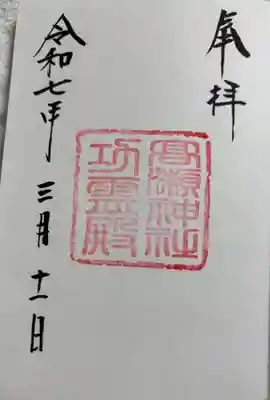 奉拝
高瀬神社
功霊殿
令和七年三月十一日